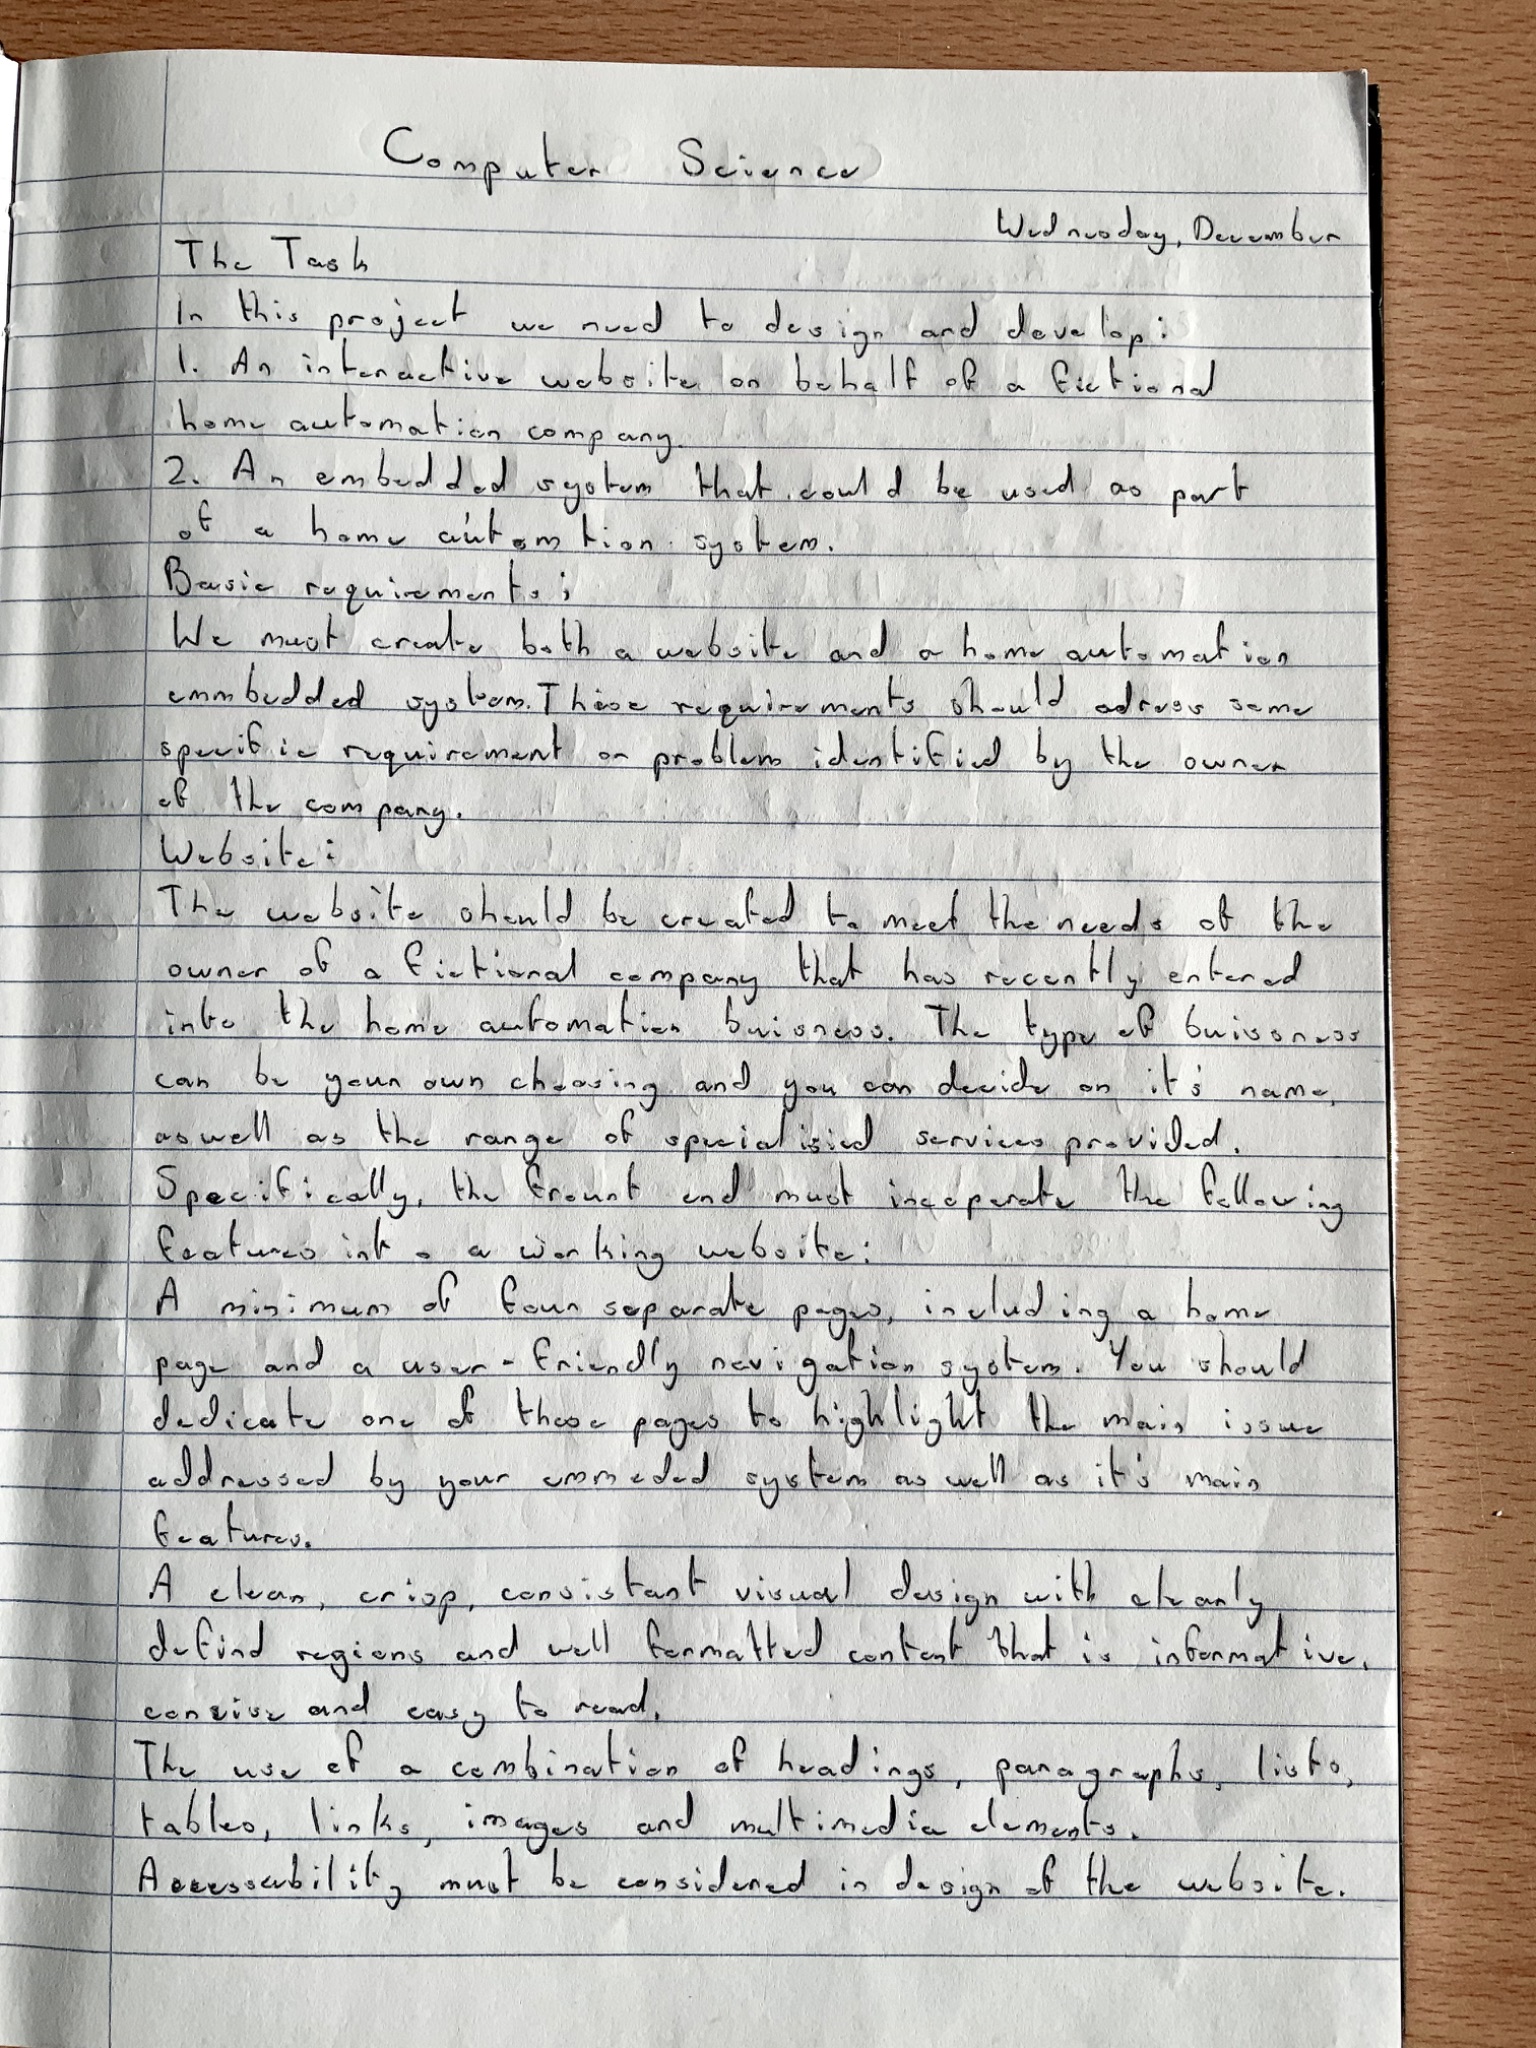 Computer Science
Wednesday, December
The Task
In this project we need to design and develop:
1. An interactive website on behalf of a fictional
home automation company.
2. An embedded system that could be used as part
of a home automtion system.
Basic requirements:
We must create both a website and a home automation
emmbedded system. These requirements should adress some
specific requirement or problem identified by the owner
of the company.
Website:
The website should be created to meet the needs of the
owner of a fictional company that has recently entered
into the home automation buisness. The type of buissness
can be your own choosing and you can decide on it's name,
aswell as the range of specialisied services provided.
Specifically, the frount end must incoperate the following
features into a working website:
A minimum of four separate pages, including a home
page and a user-friendly navigation system. You should
dedicate one of these pages to highlight the main issue
addressed by your emmeded system as well as it's main
features.
A clean, crisp, consistant visual design with clearly
defind regions and well formatted content that is informative,
concise and easy to read.
The use of a combination of headings, paragraphs, lists,
tables, links, images and multimedia elements.
Accessability must be considered in design of the website.